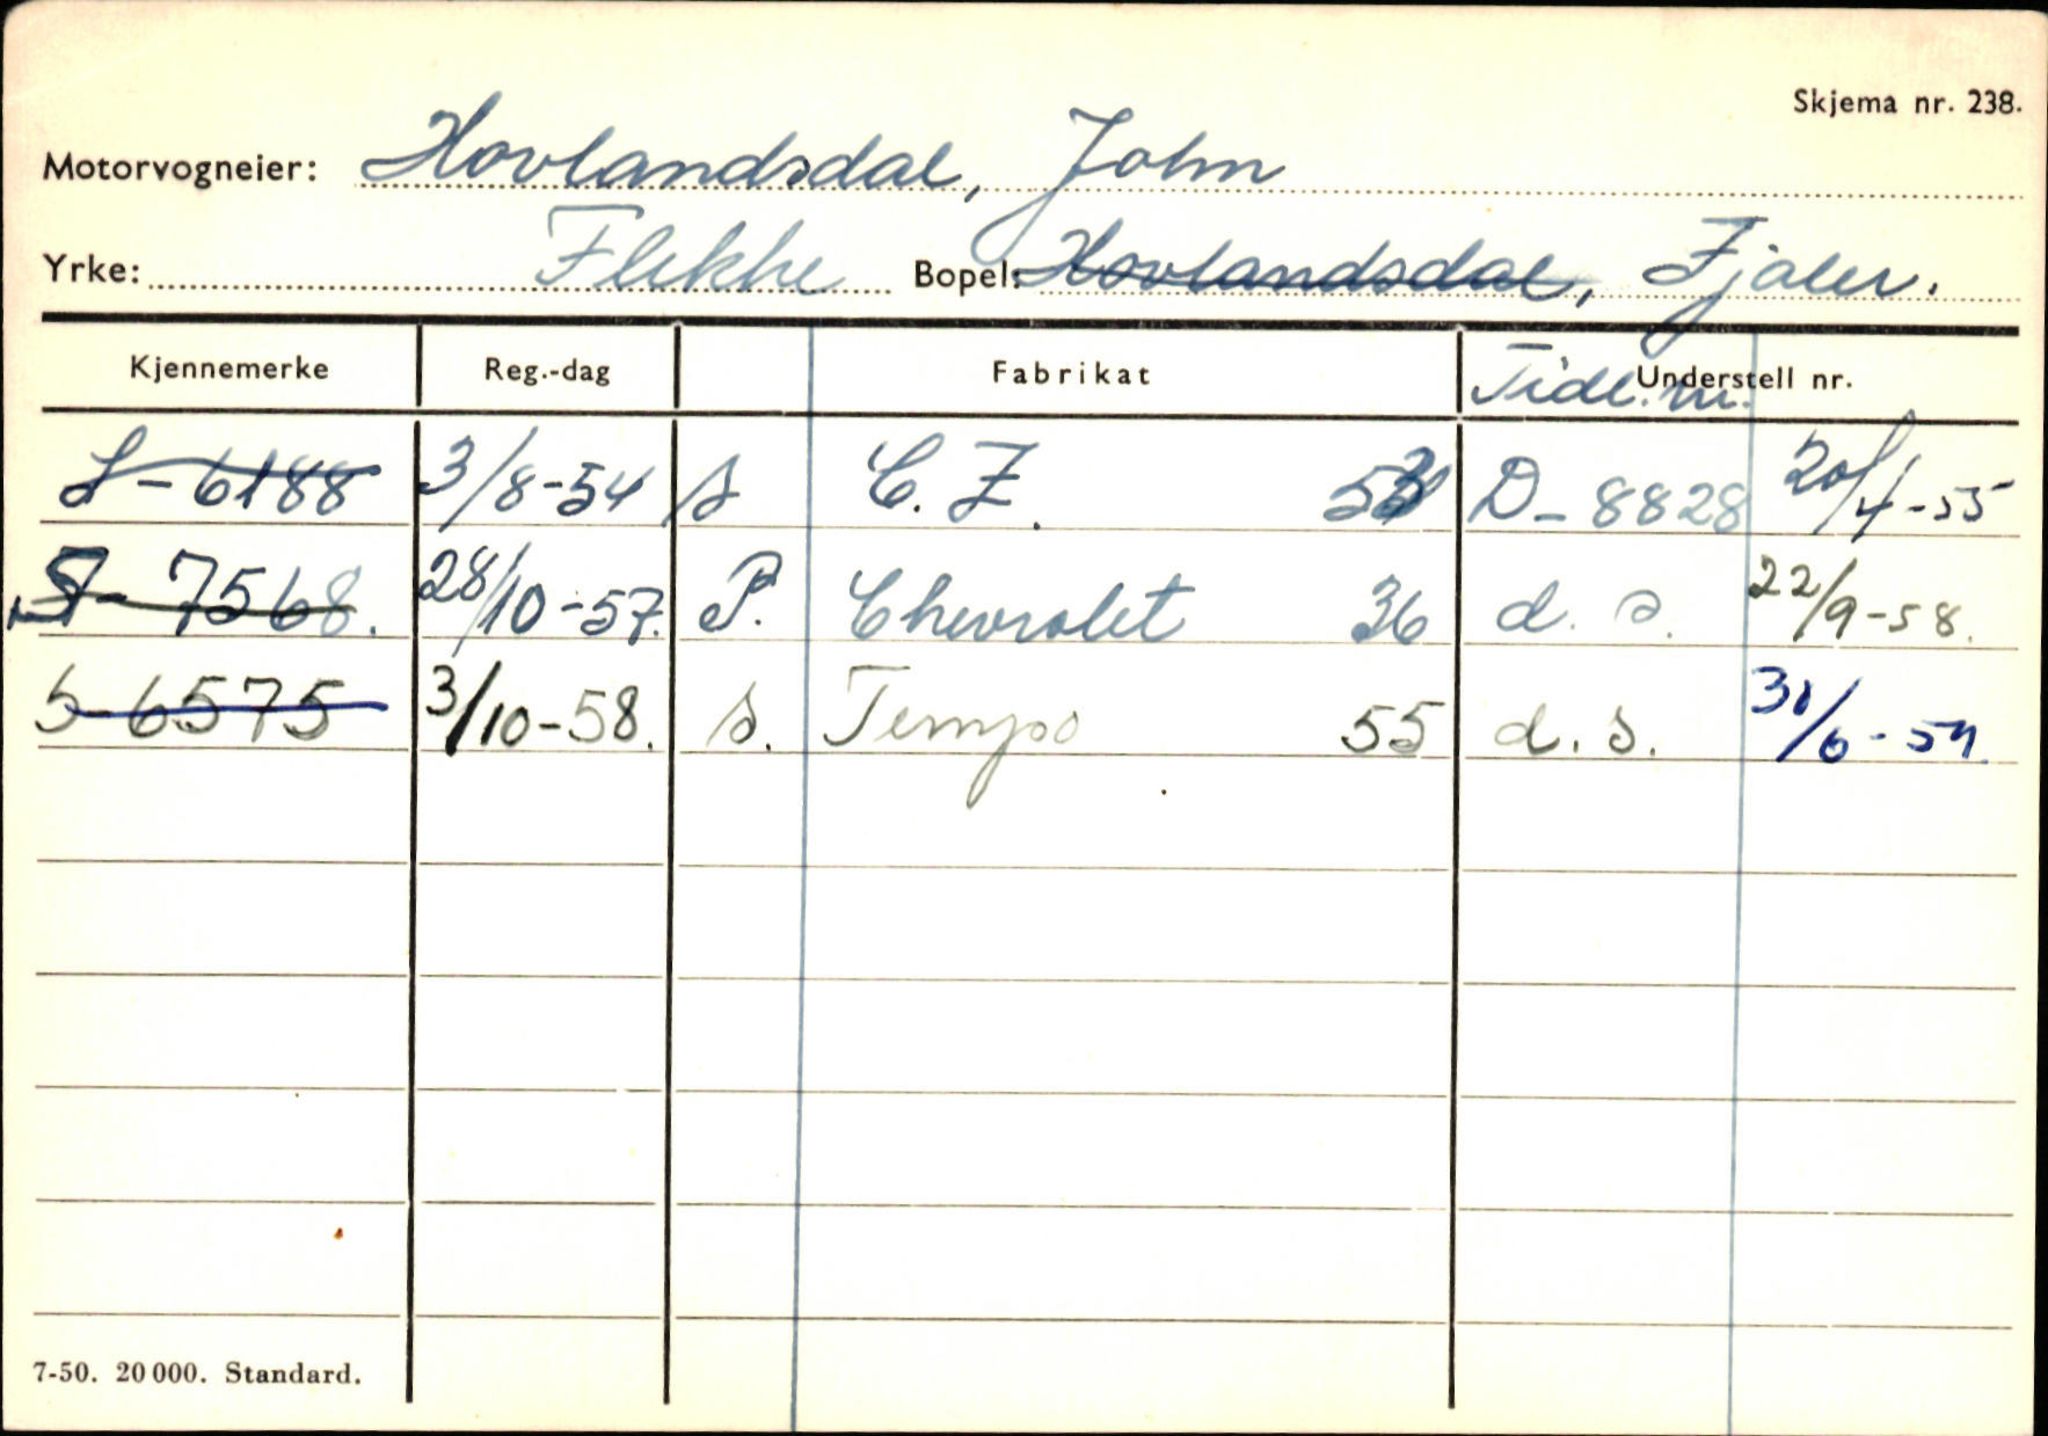 Skjema nr. 238.
Motorvogneier: Hovlandsdal, John
Yrke: Flekke Bopel: Hovlandsdal, Fjaler.
Kjennemerke Reg.-dag Fabrikat Tidl. nr. Understell nr.
S-6188 3/8-54 s C.Z. 53 D-8828 20/4-55
S-7568. 28/10-57. P. Chevrolet 36 d.s. 22/9-58.
S-6575 3/10-58. s. Tempo 55 d.s. 30/6-59.
7-50. 20 000. Standard.